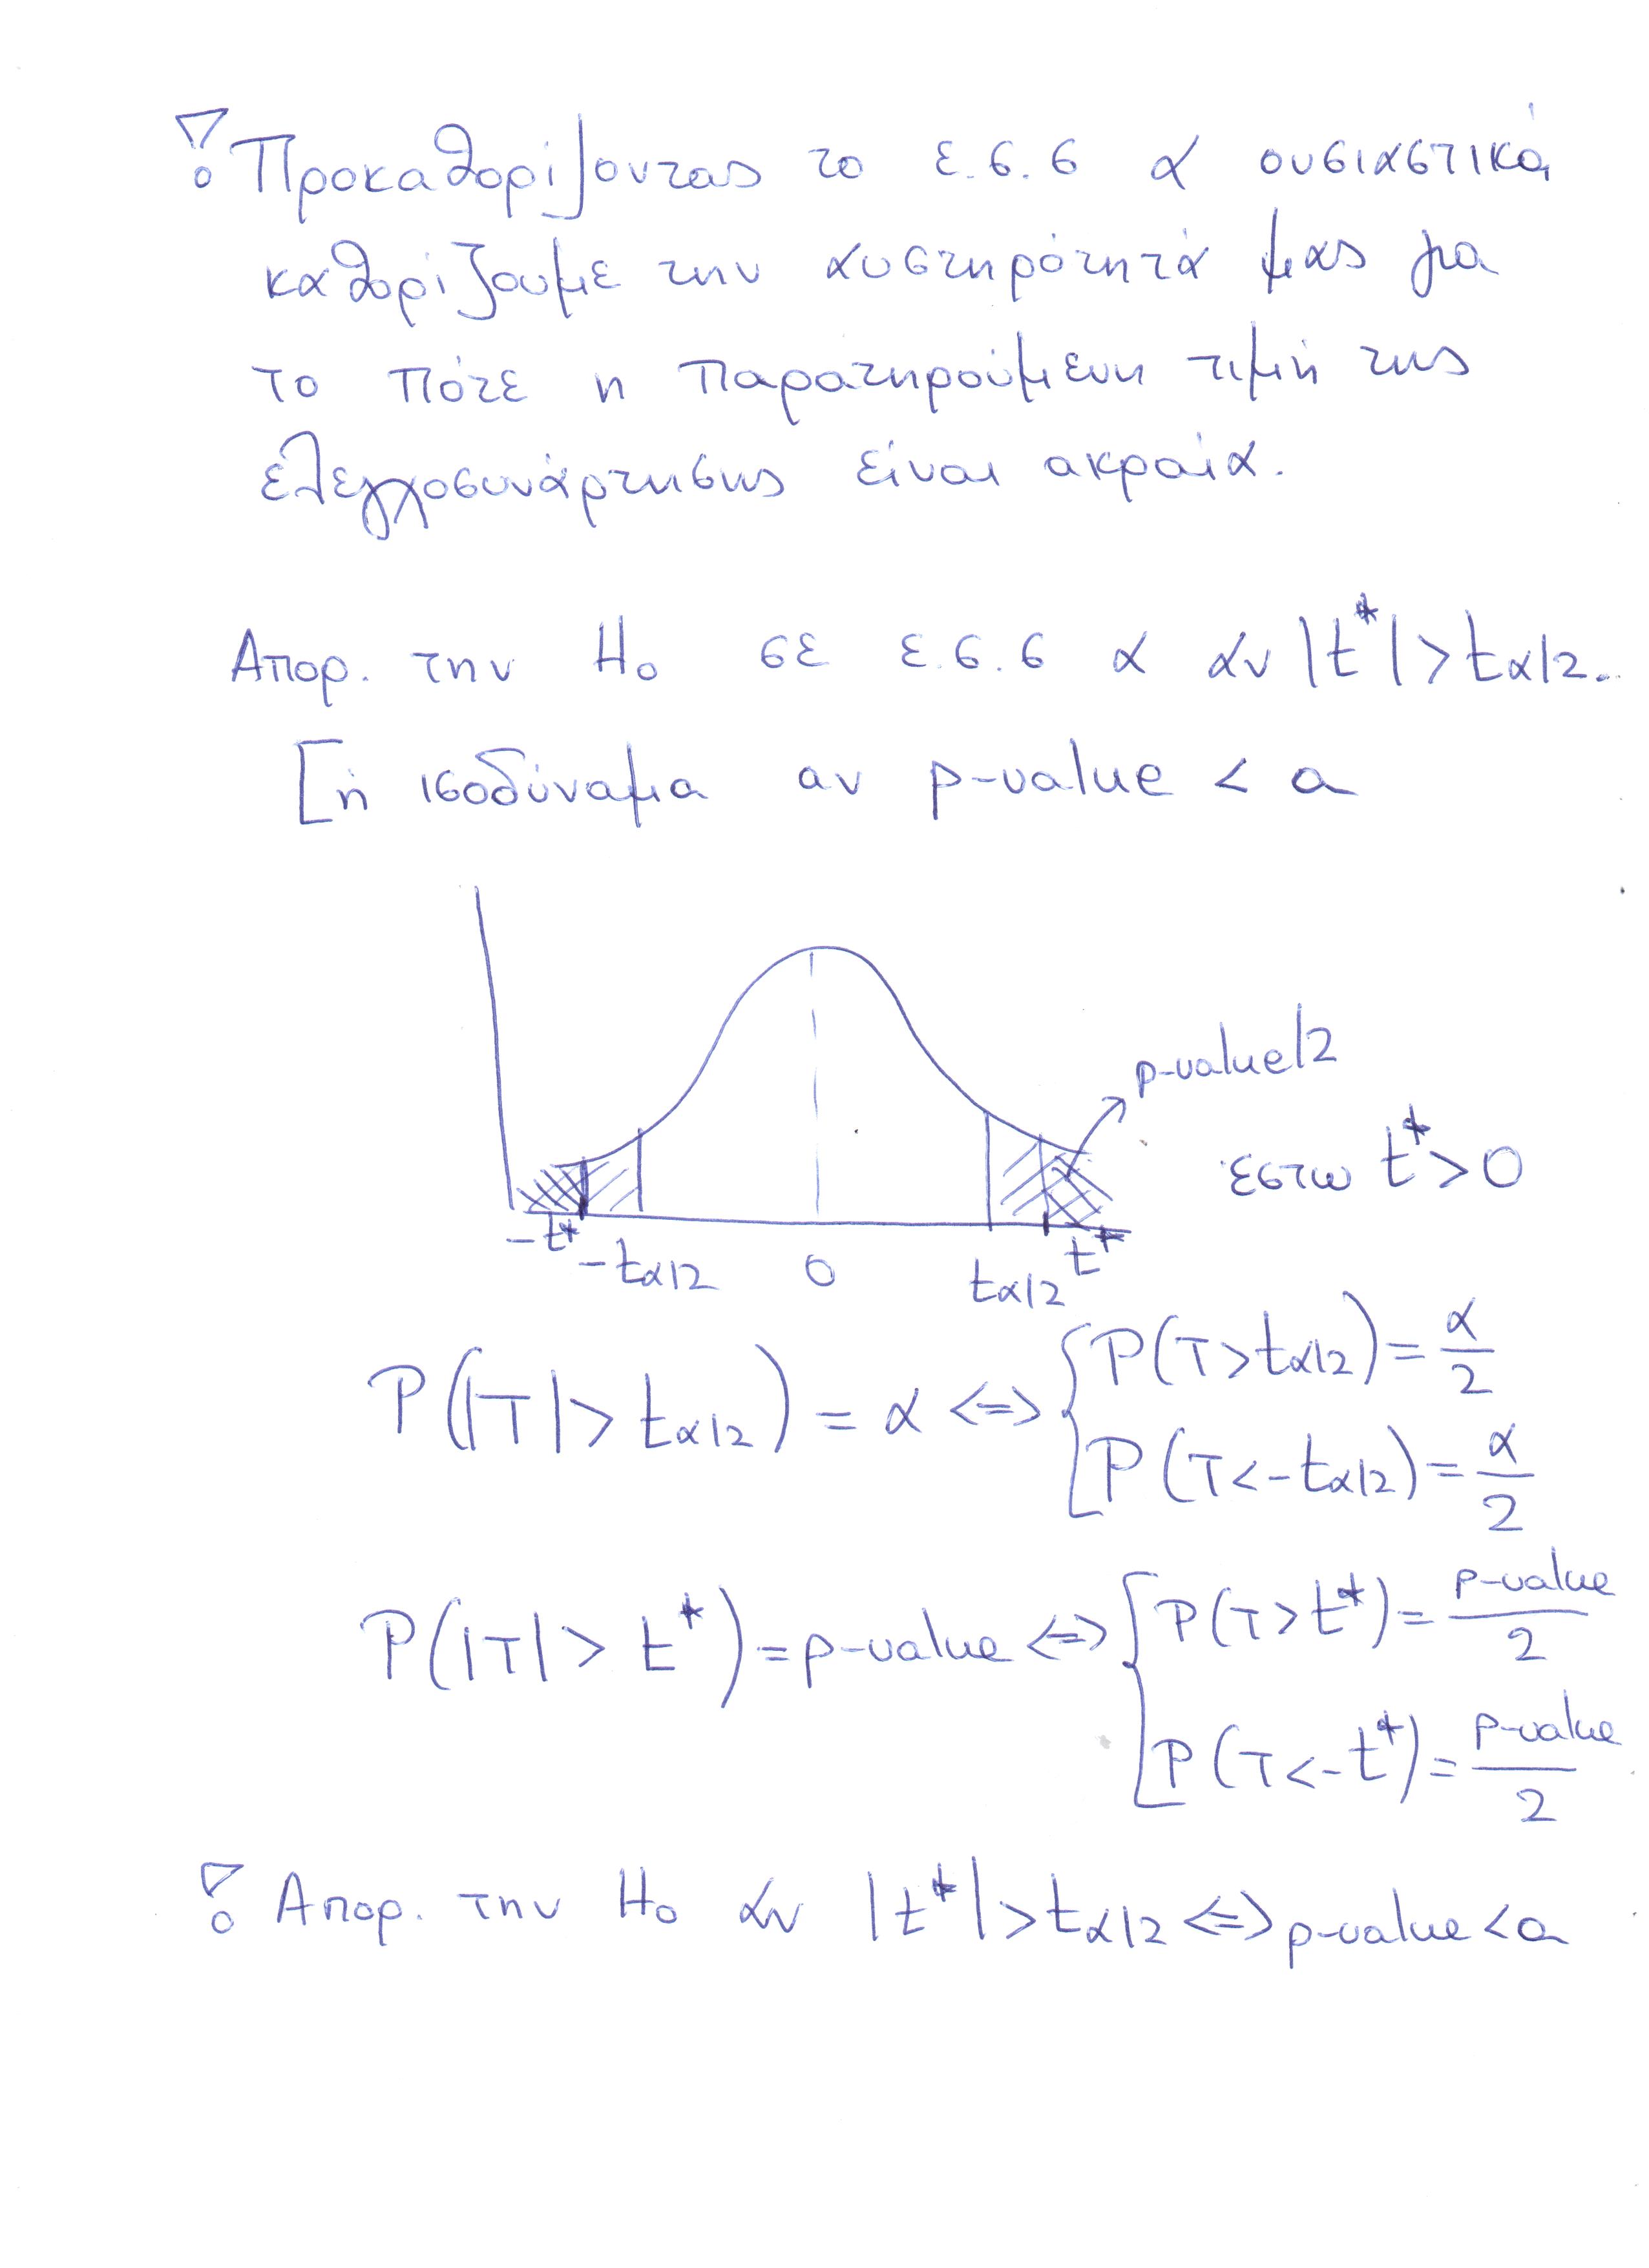 Προκαθορίζοντας το ε.σ.σ α ουσιαστικά
καθορίζουμε την αυστηρότητά μας για
το πότε η παρατηρούμενη τιμή της
ελεγχοσυνάρτησης είναι ακραία.
Απορ. την H₀ σε ε.σ.σ α αν |t*| > t_{α/2}.
[ή ισοδύναμα αν p-value < α
p-value/2
έστω t* > 0
-t* -t_{α/2} 0 t_{α/2} t*
P(|T| > t_{α/2}) = α <=> { P(T > t_{α/2}) = α/2
P(T < -t_{α/2}) = α/2
P(|T| > t*) = p-value <=> { P(T > t*) = p-value/2
P(T < -t*) = p-value/2
Απορ. την H₀ αν |t*| > t_{α/2} <=> p-value < α